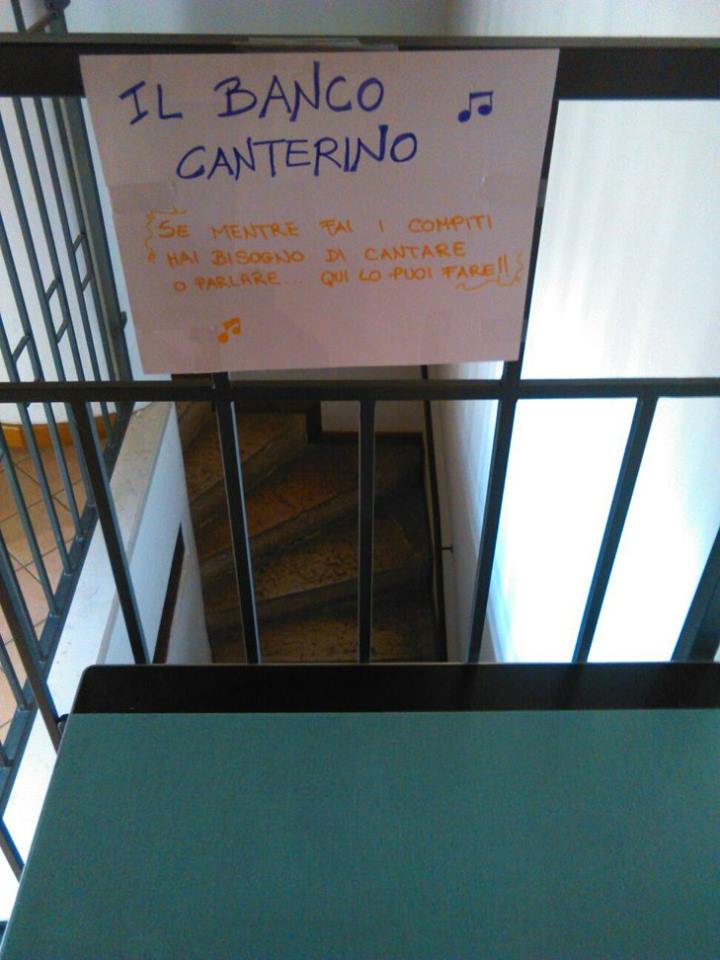 IL BANCO
CANTERINO
SE MENTRE FAI I COMPITI
HAI BISOGNO DI CANTARE
O PARLARE... QUI LO PUOI FARE!!